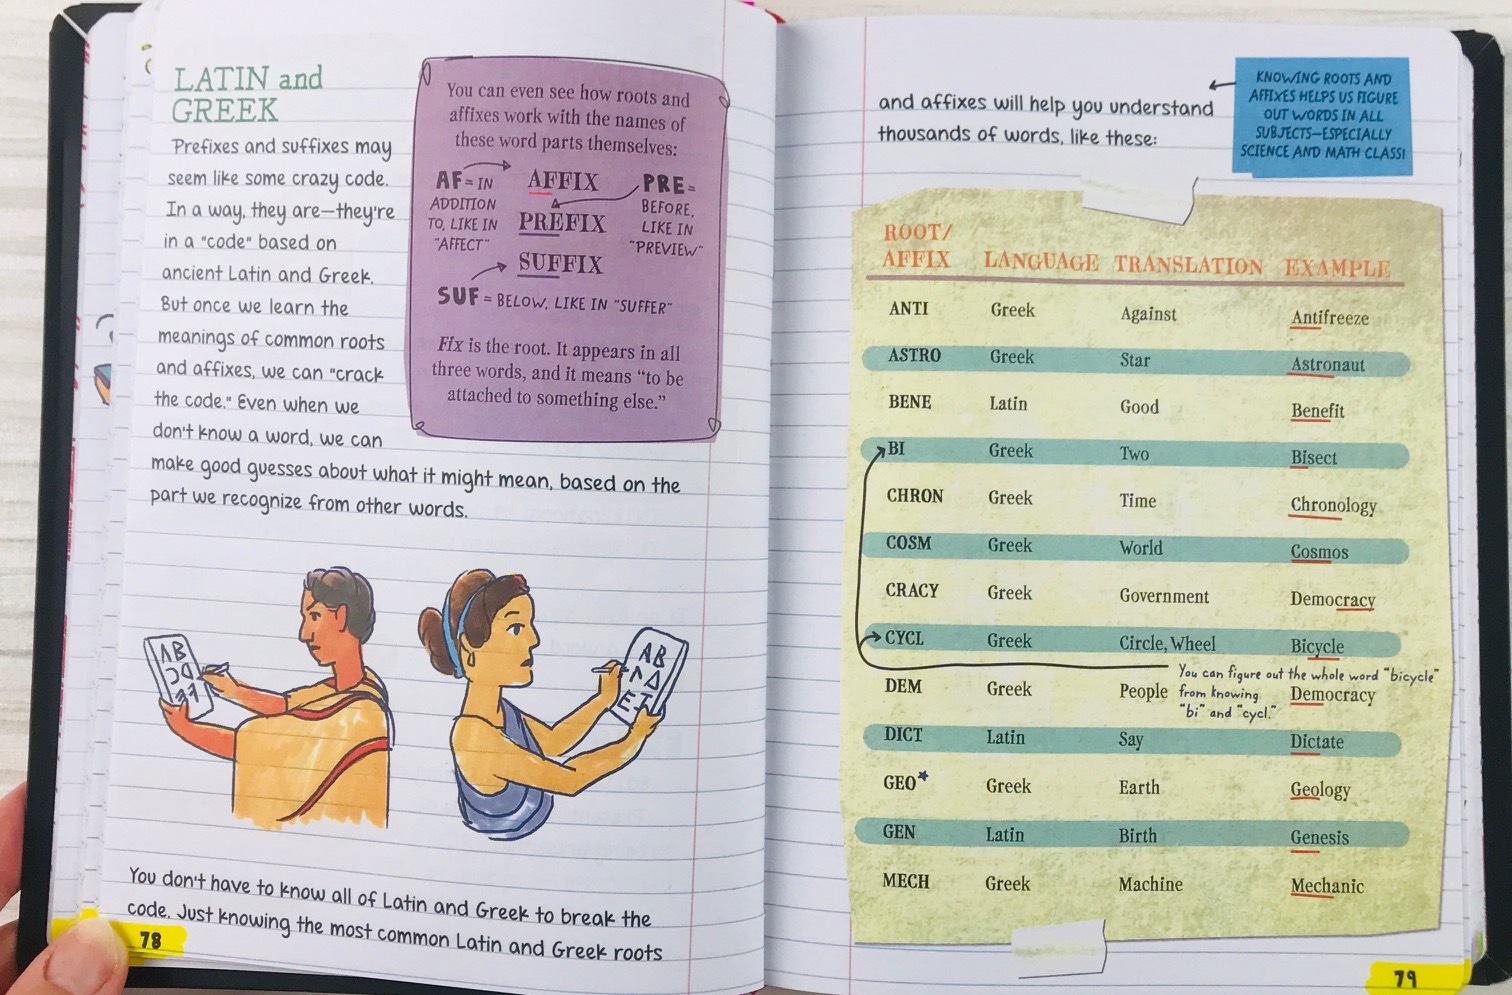 LATIN and
GREEK
Prefixes and suffixes may
seem like some crazy code.
In a way, they are—they're
in a "code" based on
ancient Latin and Greek.
But once we learn the
meanings of common roots
and affixes, we can "crack
the code." Even when we
don't know a word, we can
make good guesses about what it might mean, based on the
part we recognize from other words.
You can even see how roots and
affixes work with the names of
these word parts themselves:
AF = IN
ADDITION
TO, LIKE IN
"AFFECT"
AFFIX
PREFIX
SUFFIX
PRE =
BEFORE,
LIKE IN
"PREVIEW"
SUF = BELOW, LIKE IN "SUFFER"
Fix is the root. It appears in all
three words, and it means "to be
attached to something else."
AB
AB
You don't have to know all of Latin and Greek to break the
code. Just knowing the most common Latin and Greek roots
78
and affixes will help you understand
thousands of words, like these:
KNOWING ROOTS AND
AFFIXES HELPS US FIGURE
OUT WORDS IN ALL
SUBJECTS—ESPECIALLY
SCIENCE AND MATH CLASS!
ROOT/
AFFIX LANGUAGE TRANSLATION EXAMPLE
ANTI Greek Against Antifreeze
ASTRO Greek Star Astronaut
BENE Latin Good Benefit
BI Greek Two Bisect
CHRON Greek Time Chronology
COSM Greek World Cosmos
CRACY Greek Government Democracy
CYCL Greek Circle, Wheel Bicycle
You can figure out the whole word "bicycle"
from knowing
"bi" and "cycl."
DEM Greek People Democracy
DICT Latin Say Dictate
GEO* Greek Earth Geology
GEN Latin Birth Genesis
MECH Greek Machine Mechanic
79